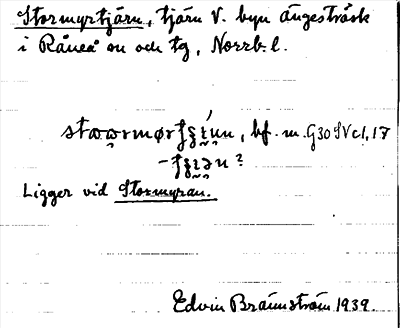 Stormyrtjärn, tjärn V. byn Ängesträsk
i Råneå sn och tg, Norrb. l.
bf. m. G30 SV c1, 17
Ligger vid Stormyran.
Edvin Brännström 1939.